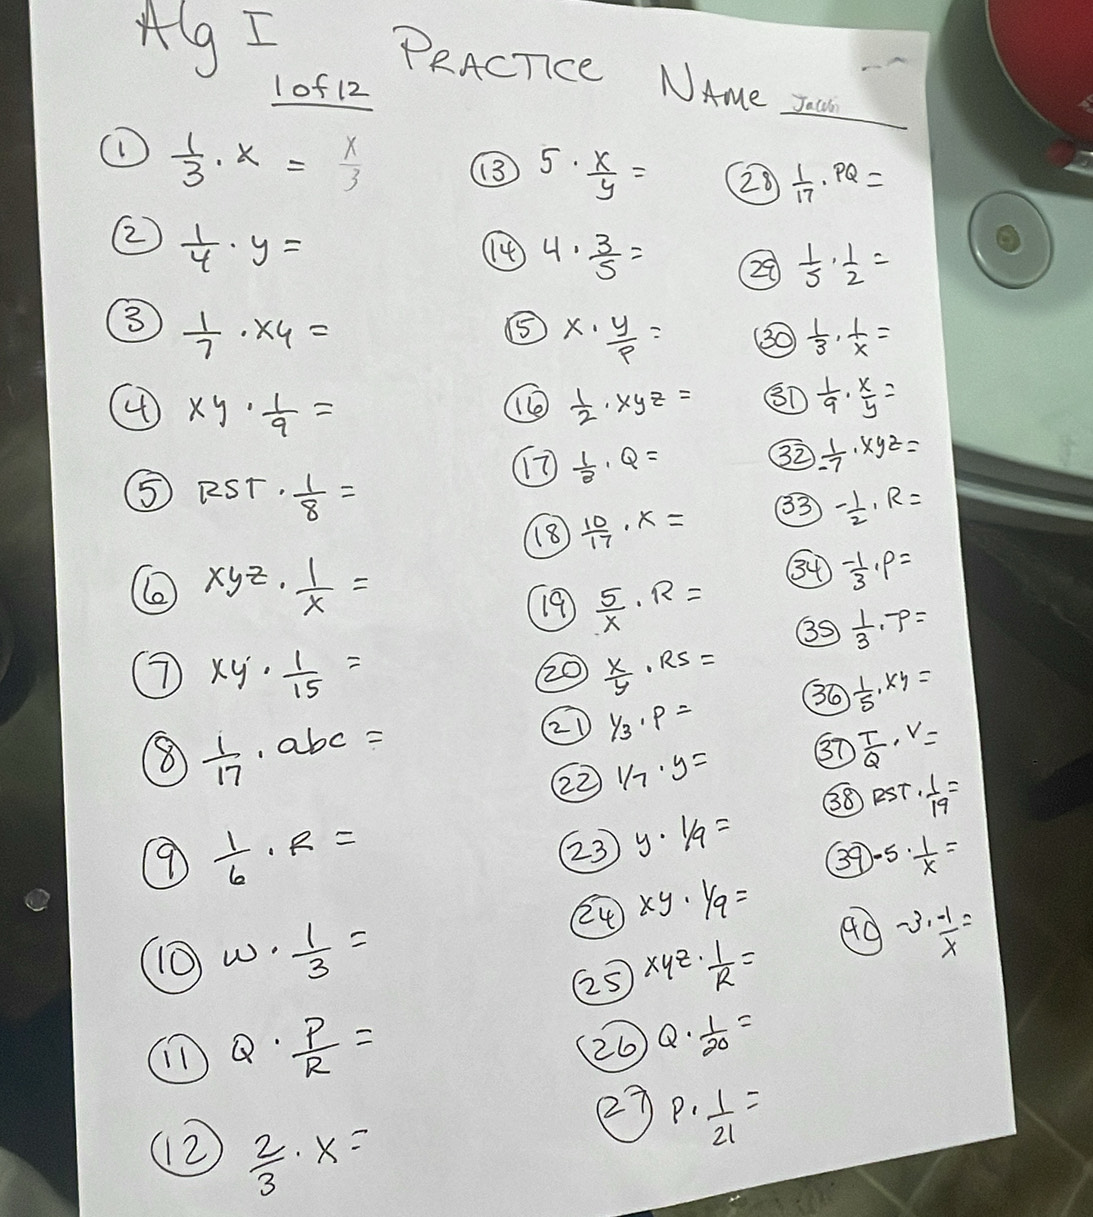 Alg I PRACTICE NAME Jacob
1 of 12
① 1/3 · x = x/3
② 1/4 · y =
③ 1/7 · xy =
④ xy · 1/9 =
⑤ RST · 1/8 =
⑥ xyz · 1/x =
⑦ xy · 1/15 =
⑧ 1/17 · abc =
⑨ 1/6 · R =
⑩ w · 1/3 =
⑪ Q · P/R =
⑫ 2/3 · x =
⑬ 5 · x/y =
⑭ 4 · 3/5 =
⑮ x · y/P =
⑯ 1/2 · xyz =
⑰ 1/8 · Q =
⑱ 10/17 · x =
⑲ 5/x · R =
⑳ x/y · RS =
㉑ 1/3 · P =
㉒ 1/7 · y =
㉓ y · 1/9 =
㉔ xy · 1/9 =
㉕ xyz · 1/R =
㉖ Q · 1/20 =
㉗ P · 1/21 =
㉘ 1/17 · PQ =
㉙ 1/5 · 1/2 =
㉚ 1/3 · 1/x =
㉛ 1/9 · x/y =
㉜ 1/-7 · xyz =
㉝ -1/2 · R =
㉞ -1/3 · P =
㉟ 1/3 · -P =
㊱ 1/5 · xy =
㊲ T/Q · V =
㊳ RST · 1/19 =
㊴ -5 · 1/x =
㊵ -3 · -1/x =